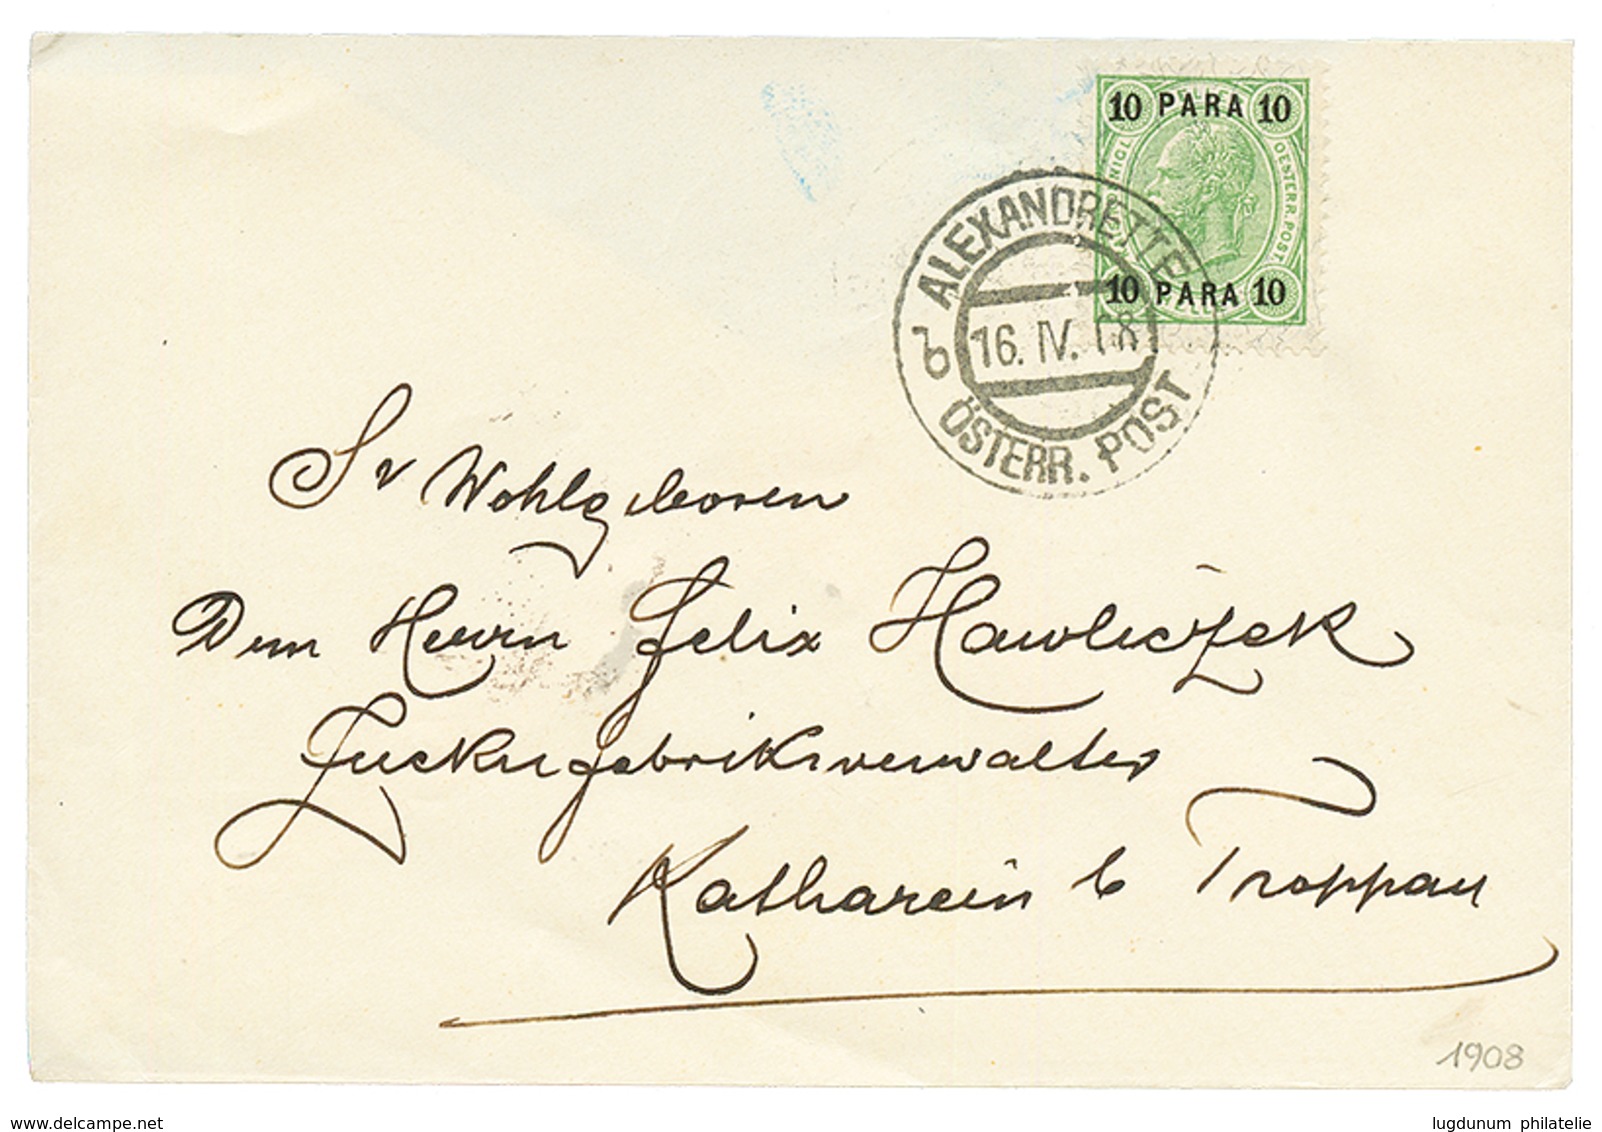 10 PARA 10
KÖNIGL. OESTERR. POST.
10 PARA 10
ALEXANDRETTE
16. IV. 08
b
ÖSTERR. POST
Sr Wohlgeboren
Dem Herrn Felix Hawliczek
Zuckerfabriksverwalter
Katharein b Troppau
1908
delcampe.net
lugdunum philatelie